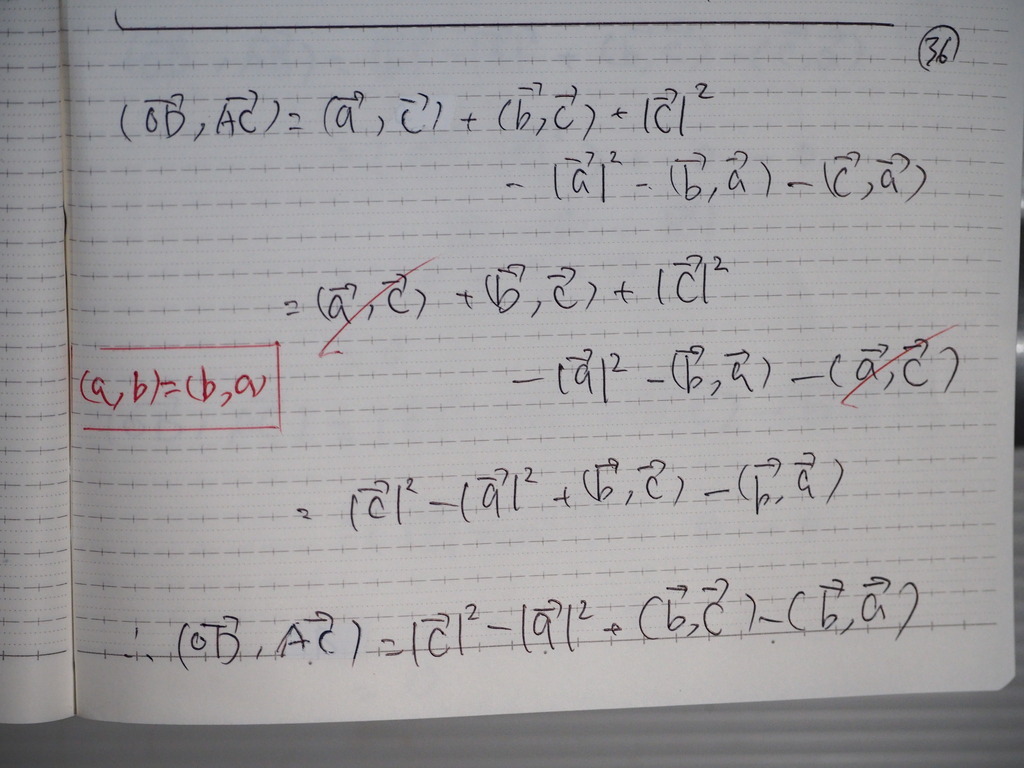 ㊱
(OD⃗, AC⃗) = (a⃗, c⃗) + (b⃗, c⃗) + |c⃗|²
- |a⃗|² - (b⃗, a⃗) - (c⃗, a⃗)
= (a⃗, c⃗) + (b⃗, c⃗) + |c⃗|²
- |a⃗|² - (b⃗, a⃗) - (a⃗, c⃗)
(a, b) = (b, a)
= |c⃗|² - |a⃗|² + (b⃗, c⃗) - (b⃗, a⃗)
∴ (OD⃗, AC⃗) = |c⃗|² - |a⃗|² + (b⃗, c⃗) - (b⃗, a⃗)